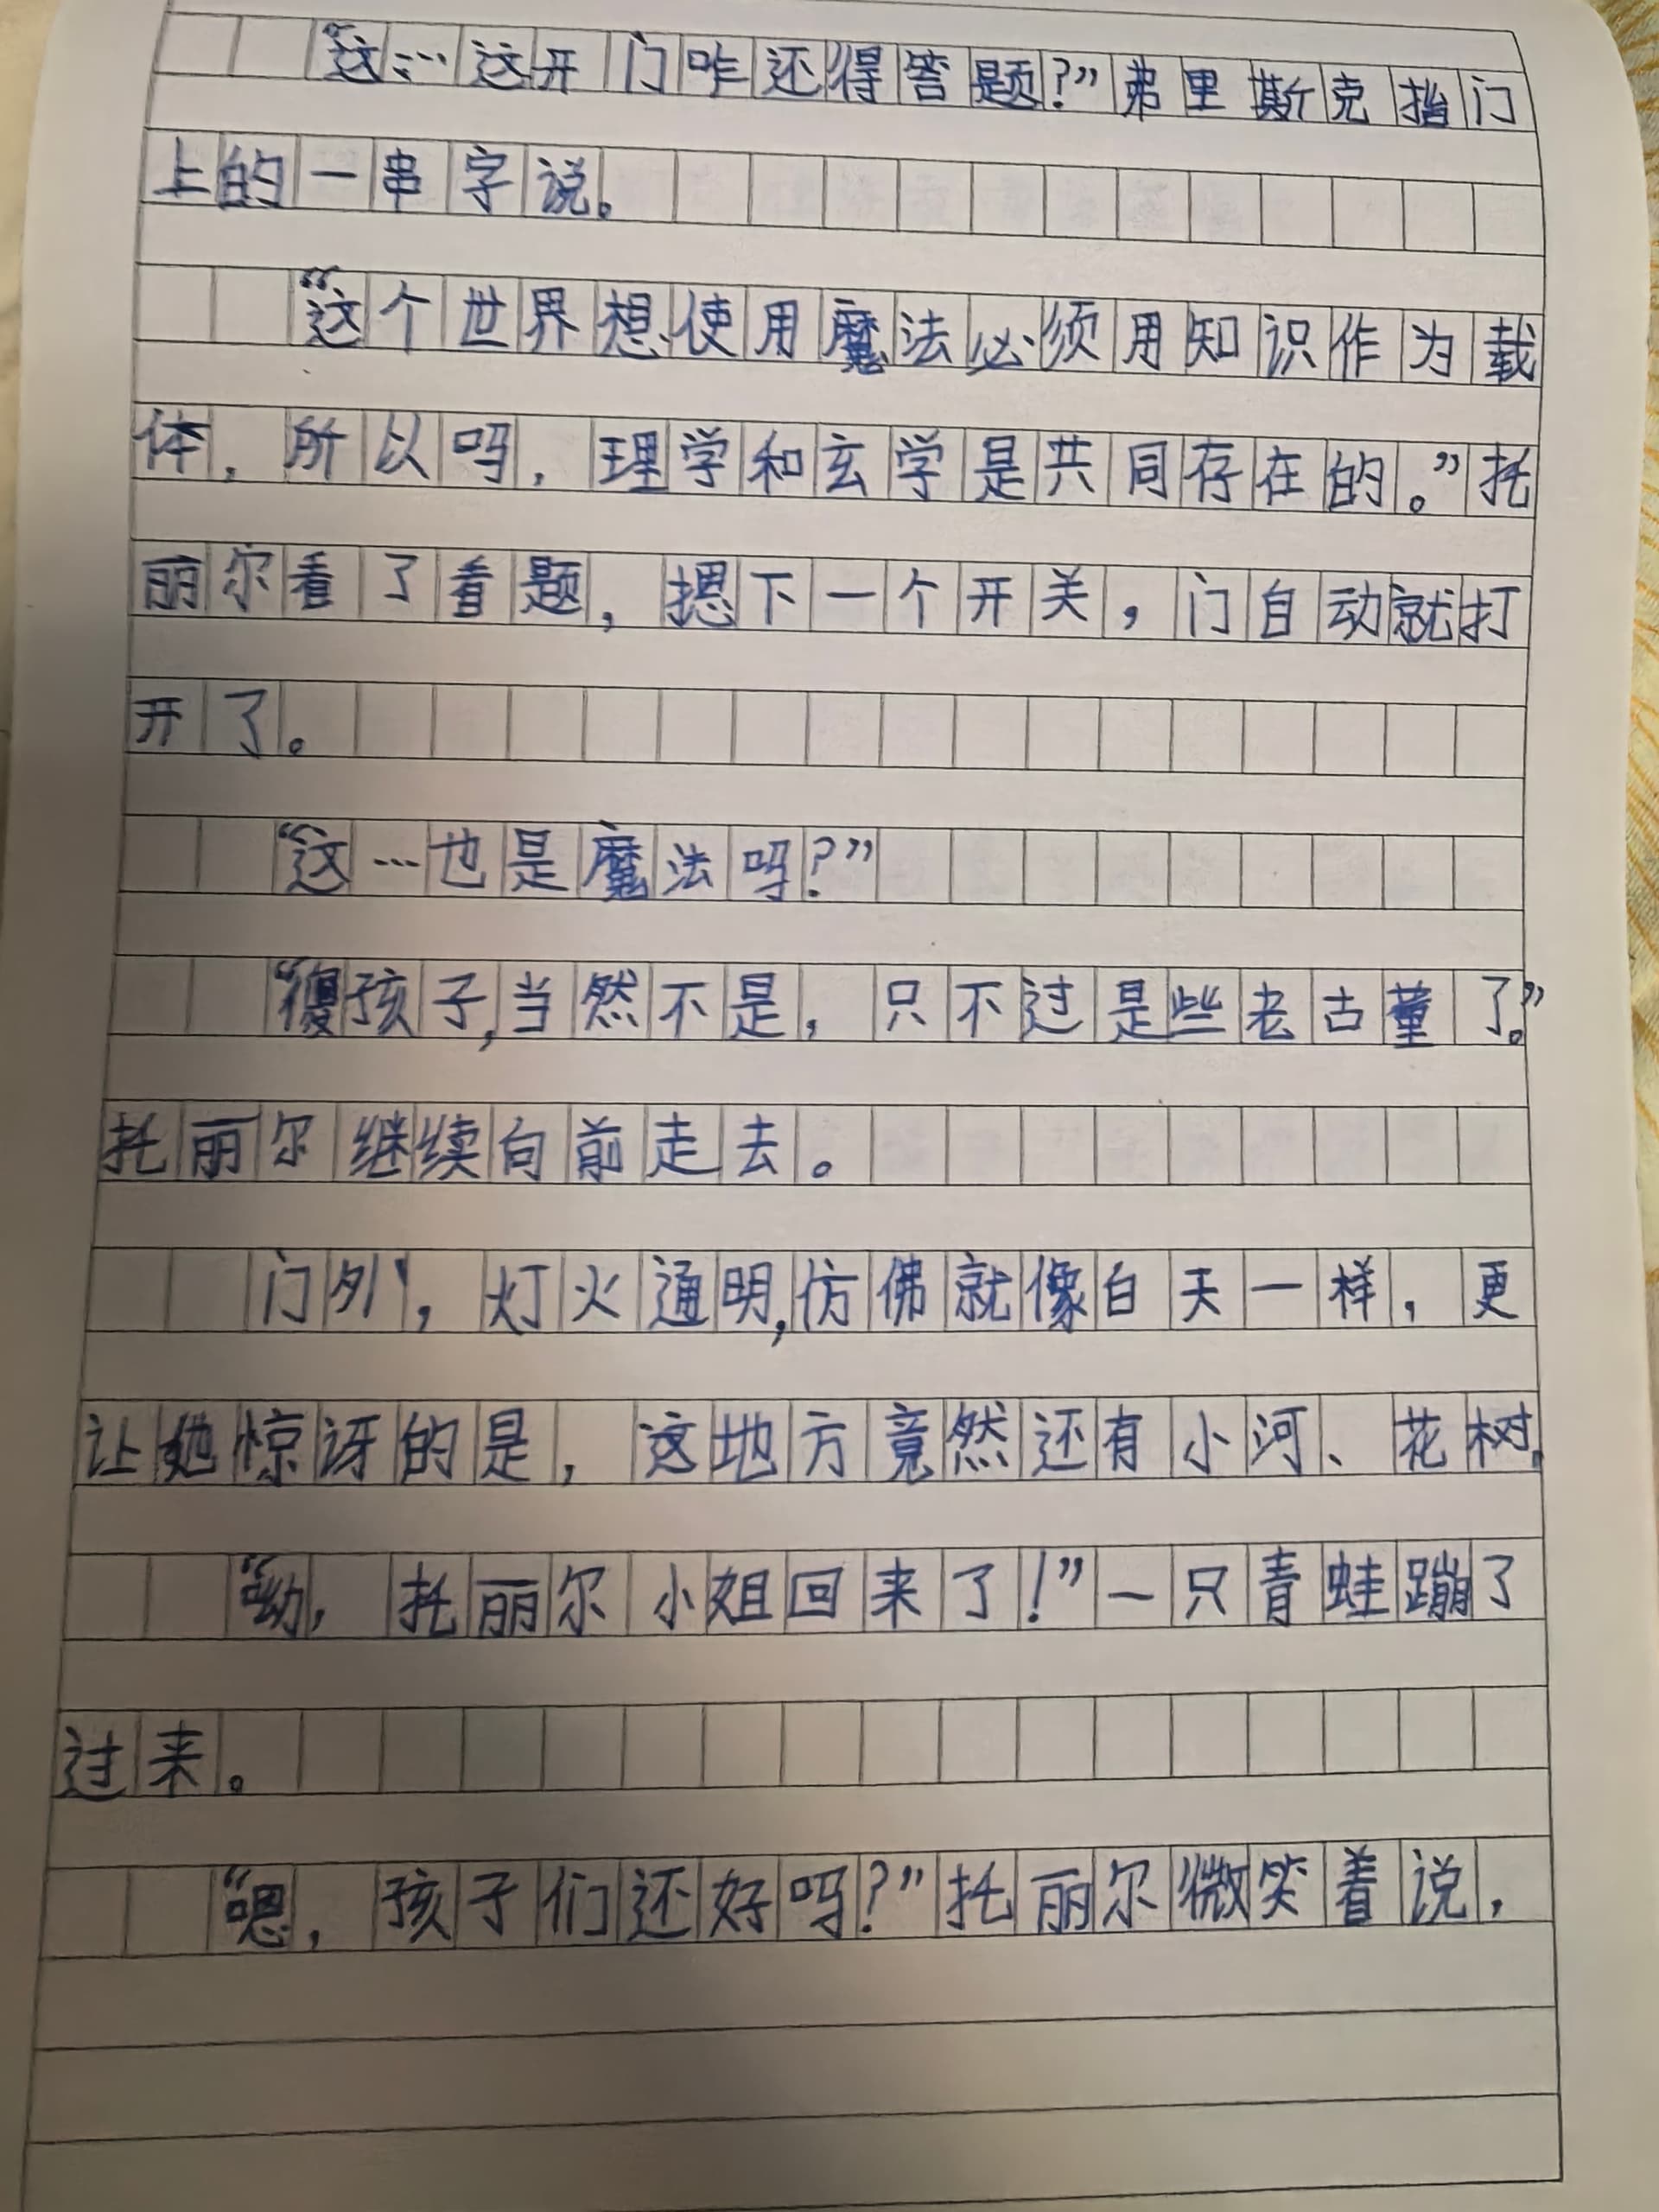 “这……这开门咋还得答题?”弗里斯克指门
上的一串字说。
“这个世界想使用魔法必须用知识作为载
体，所以吗，理学和玄学是共同存在的。”托
丽尔看了看题，摁下一个开关，门自动就打
开了。
“这…也是魔法吗?”
“傻孩子,当然不是，只不过是些老古董了。”
托丽尔继续向前走去。
门外，灯火通明,仿佛就像白天一样，更
让她惊讶的是，这地方竟然还有小河、花树。
“呦，托丽尔小姐回来了!”一只青蛙蹦了
过来。
“嗯，孩子们还好吗?”托丽尔微笑着说，